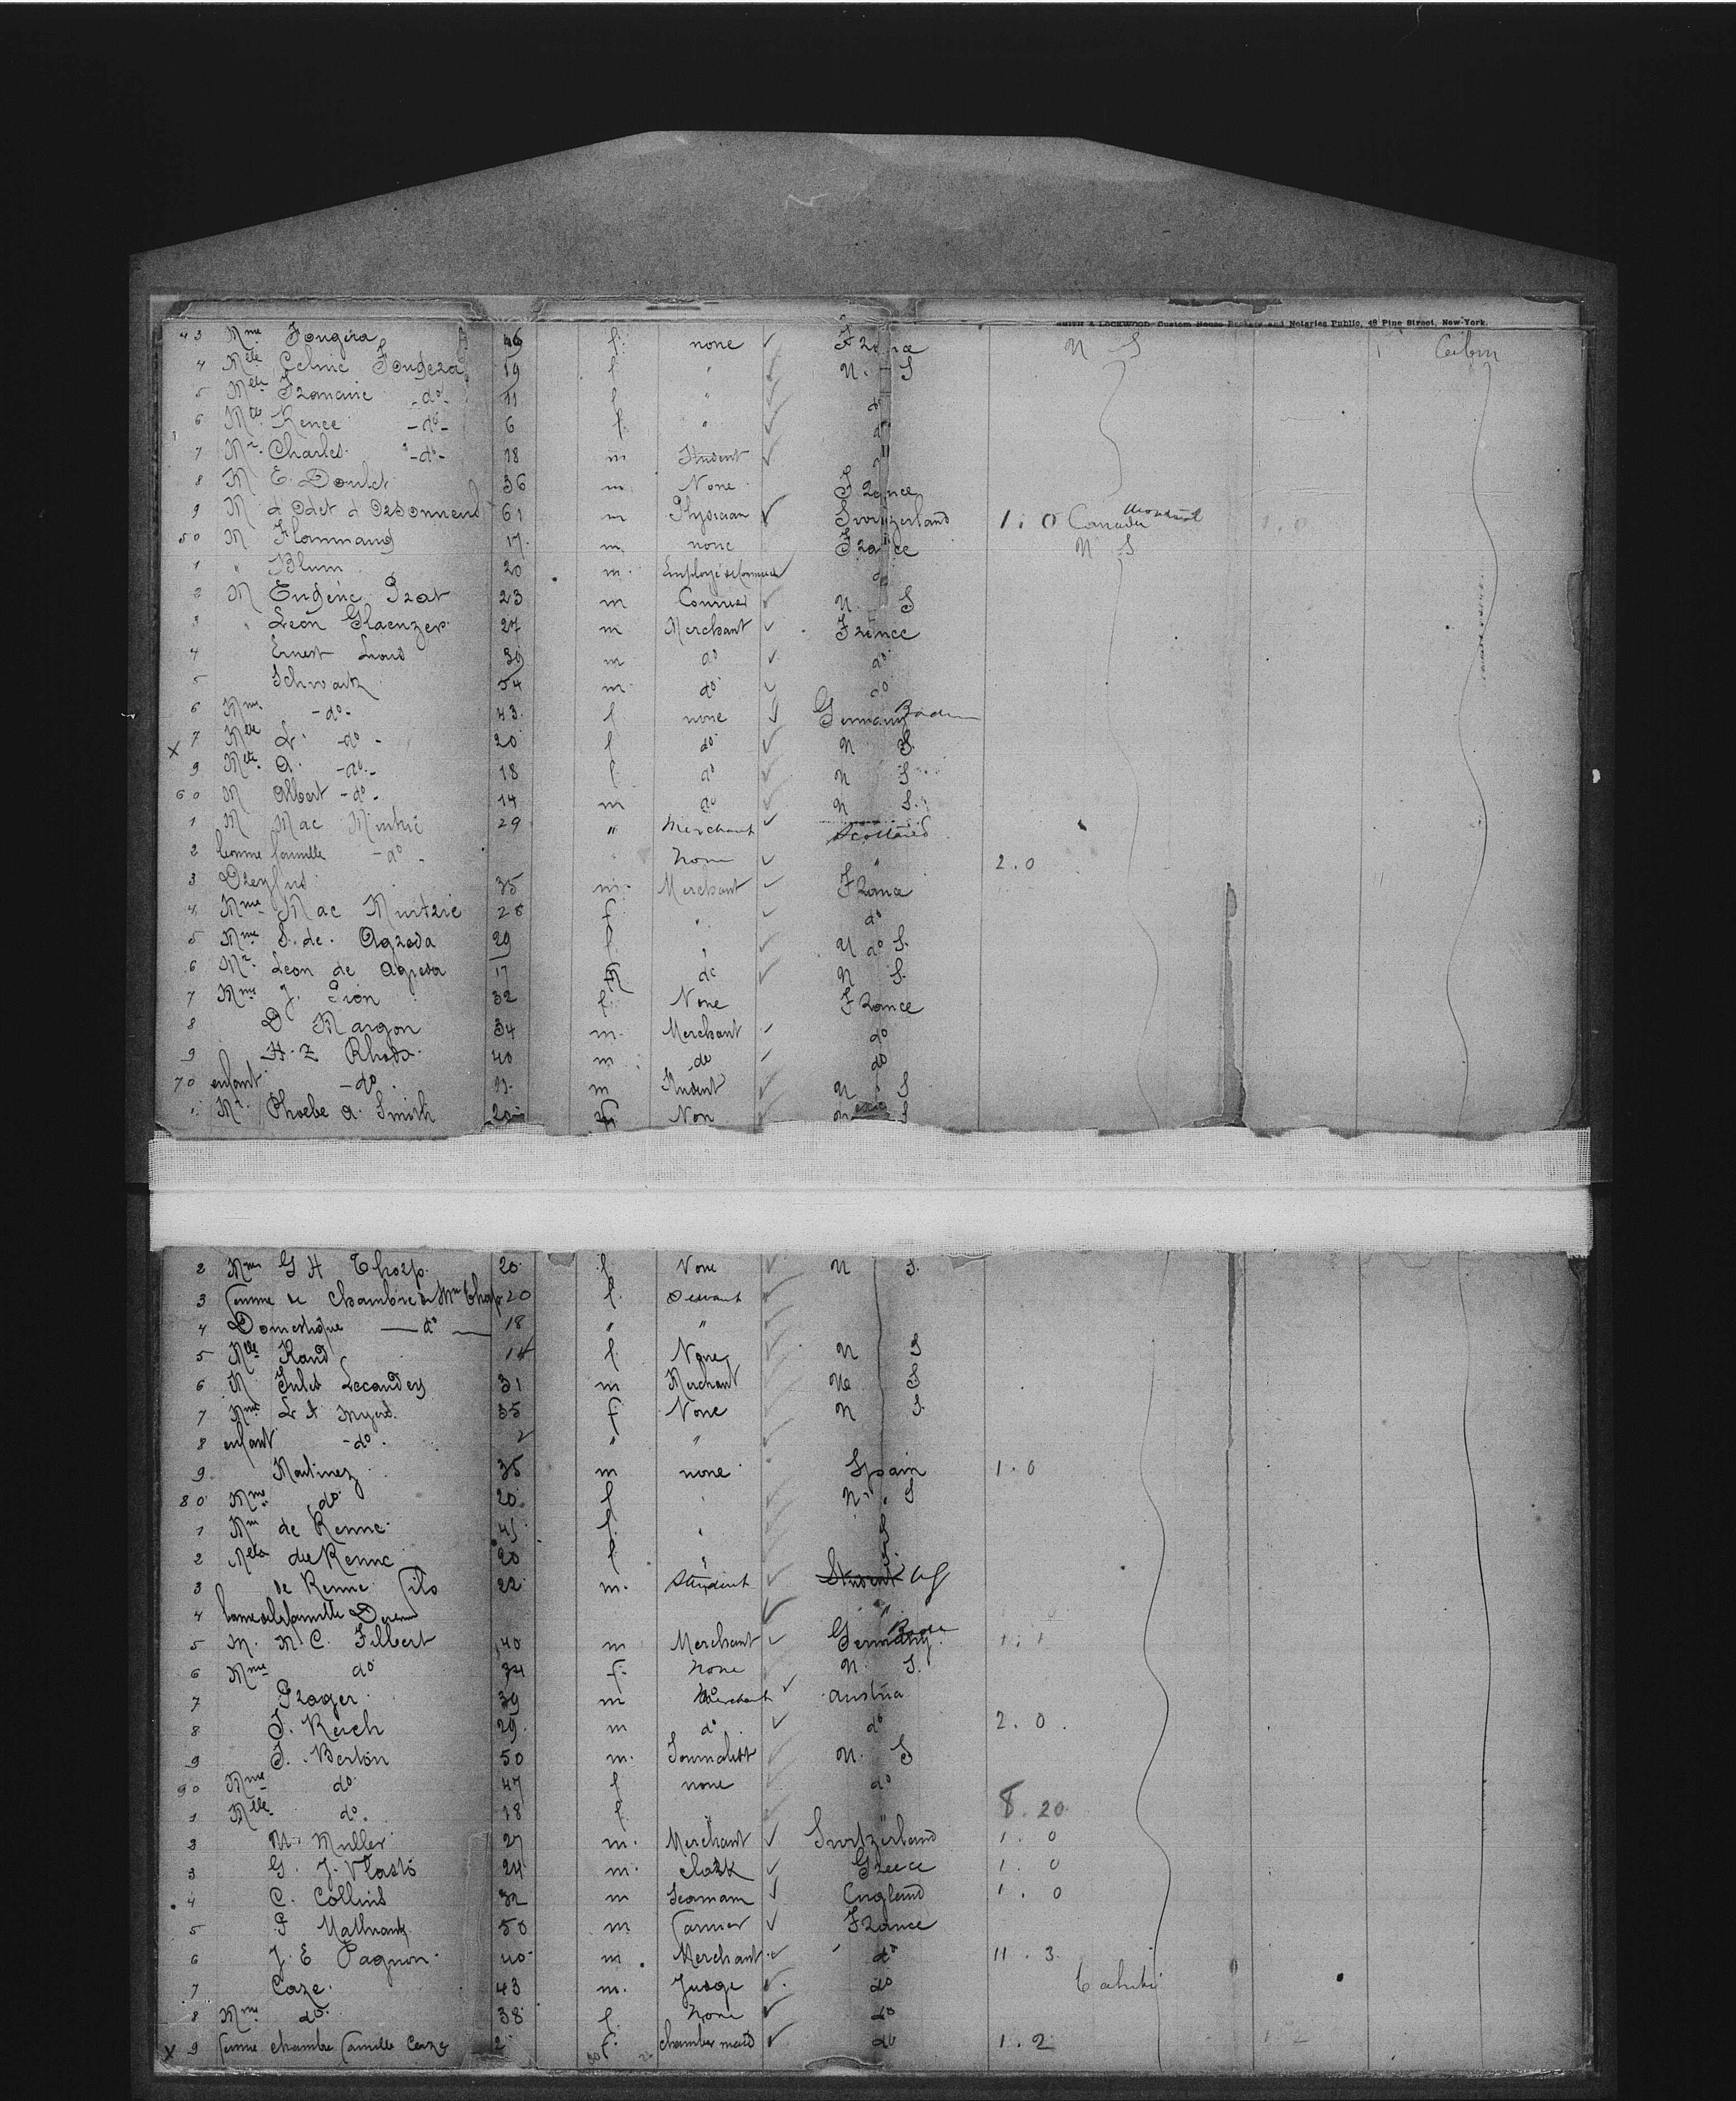 SMITH & LOCKWOOD Custom House Brokers and Notaries Public, 48 Pine Street, New-York.
43 Mme Fougera 46 f. none ✓ France U S Cabin
4 Melle Celine Fougera 19 f " ✓ U. S
5 Melle Francine -do- 11 f " ✓ do
6 Melle Renee -do- 6 f. " ✓ do
7 Mr. Charles -do- 18 m Student ✓ "
8 M E. Doulet 36 m None France
9 M d'Odet d'Orsonnens 61 m Physician ✓ Switzerland 1. 0 Canada Montreal 1.0
50 M Flammand 17 m. none France U S
1 " Blum 20 m. Employé de Commerce ✓ do
2 M Eugène Prat 23 m Courrier ✓ U. S
3 " Leon Glaenzer 27 m Merchant ✓ France
4 Ernest Louis 30 m do ✓ do
5 Schwartz 54 m do ✓ do
6 Mme -do- 43. f none ✓ Germany Baden
x 7 Melle L. -do- 20 f do ✓ U S.
9 Melle A. -do- 18 f. do ✓ U S
60 M Albert -do- 14 m do ✓ U S.
1 M Mac 29 " Merchant ✓ Scotland
2 bonne famille -do- None ✓ " 2.0
3 Dreyfus 35 m. Merchant ✓ France
4 Mme Mac 28 f " ✓ do
5 Mme S. de Agreda 29 f. " ✓ U do S.
6 Mr. Leon de Agreda 17 m do ✓ U S.
7 Mme J. Pion 32 f. None France
8 D Margon 34 m. Merchant ✓ do
9 H. Z Rhods 40 m do ✓ do
70 enfant -do- 11. m Student ✓ U S
1 Mr. Phoebe A. Smith 20 f Non ✓ U S
2 Mme G H Thorp. 20 f. None ✓ U S.
3 femme de chambre de Mme Thorp 20 f. Servant ✓
4 Domestique — do — 18 " " ✓
5 Melle Rand 14 f. None ✓ U S
6 M Jules Lecanders 31 m Merchant ✓ U S
7 Mme L A Myers. 35 f None ✓ U S.
8 enfant -do- 2 " " ✓
9. Martinez 35 m none Spain 1.0
80 Mme do 20. f " ✓ U. " S
1 Mme de Renne 45 f. " ✓ S
2 Melle de Renne 20 f " ✓ S.
3 de Renne fils 22 m. Student ✓ Student US
4 bonne de la famille ✓ "
5 M. M C. Filbert 40 m Merchant ✓ Germany Baden 1. 1
6 Mme do 34 f. None U. S.
7 Prager 39 m Merchant ✓ Austria
8 J. Reich 29. m do ✓ do 2. 0.
9 J. Berton 50 m. Journalist U. S
90 Mme do 47 f none ✓ do
1 Melle do. 18 f. " ✓ " 8. 20.
3 M. Muller 27 m. Merchant ✓ Switzerland 1. 0
3 G. J. Vlasto 24 m. Clark ✓ Greece 1. 0
4 C. Collins 32 m Seaman ✓ England 1. 0
5 P 50 m Farmer ✓ France
6 J. E Pagnon. 40 m. Merchant ✓ do 11. 3.
7 Caze. 43 m. Judge ✓ do Tahiti
8 Mme do 38 f. None ✓ do
x 9 femme chambre famille Caze 2 f. chamber maid ✓ do 1. 2